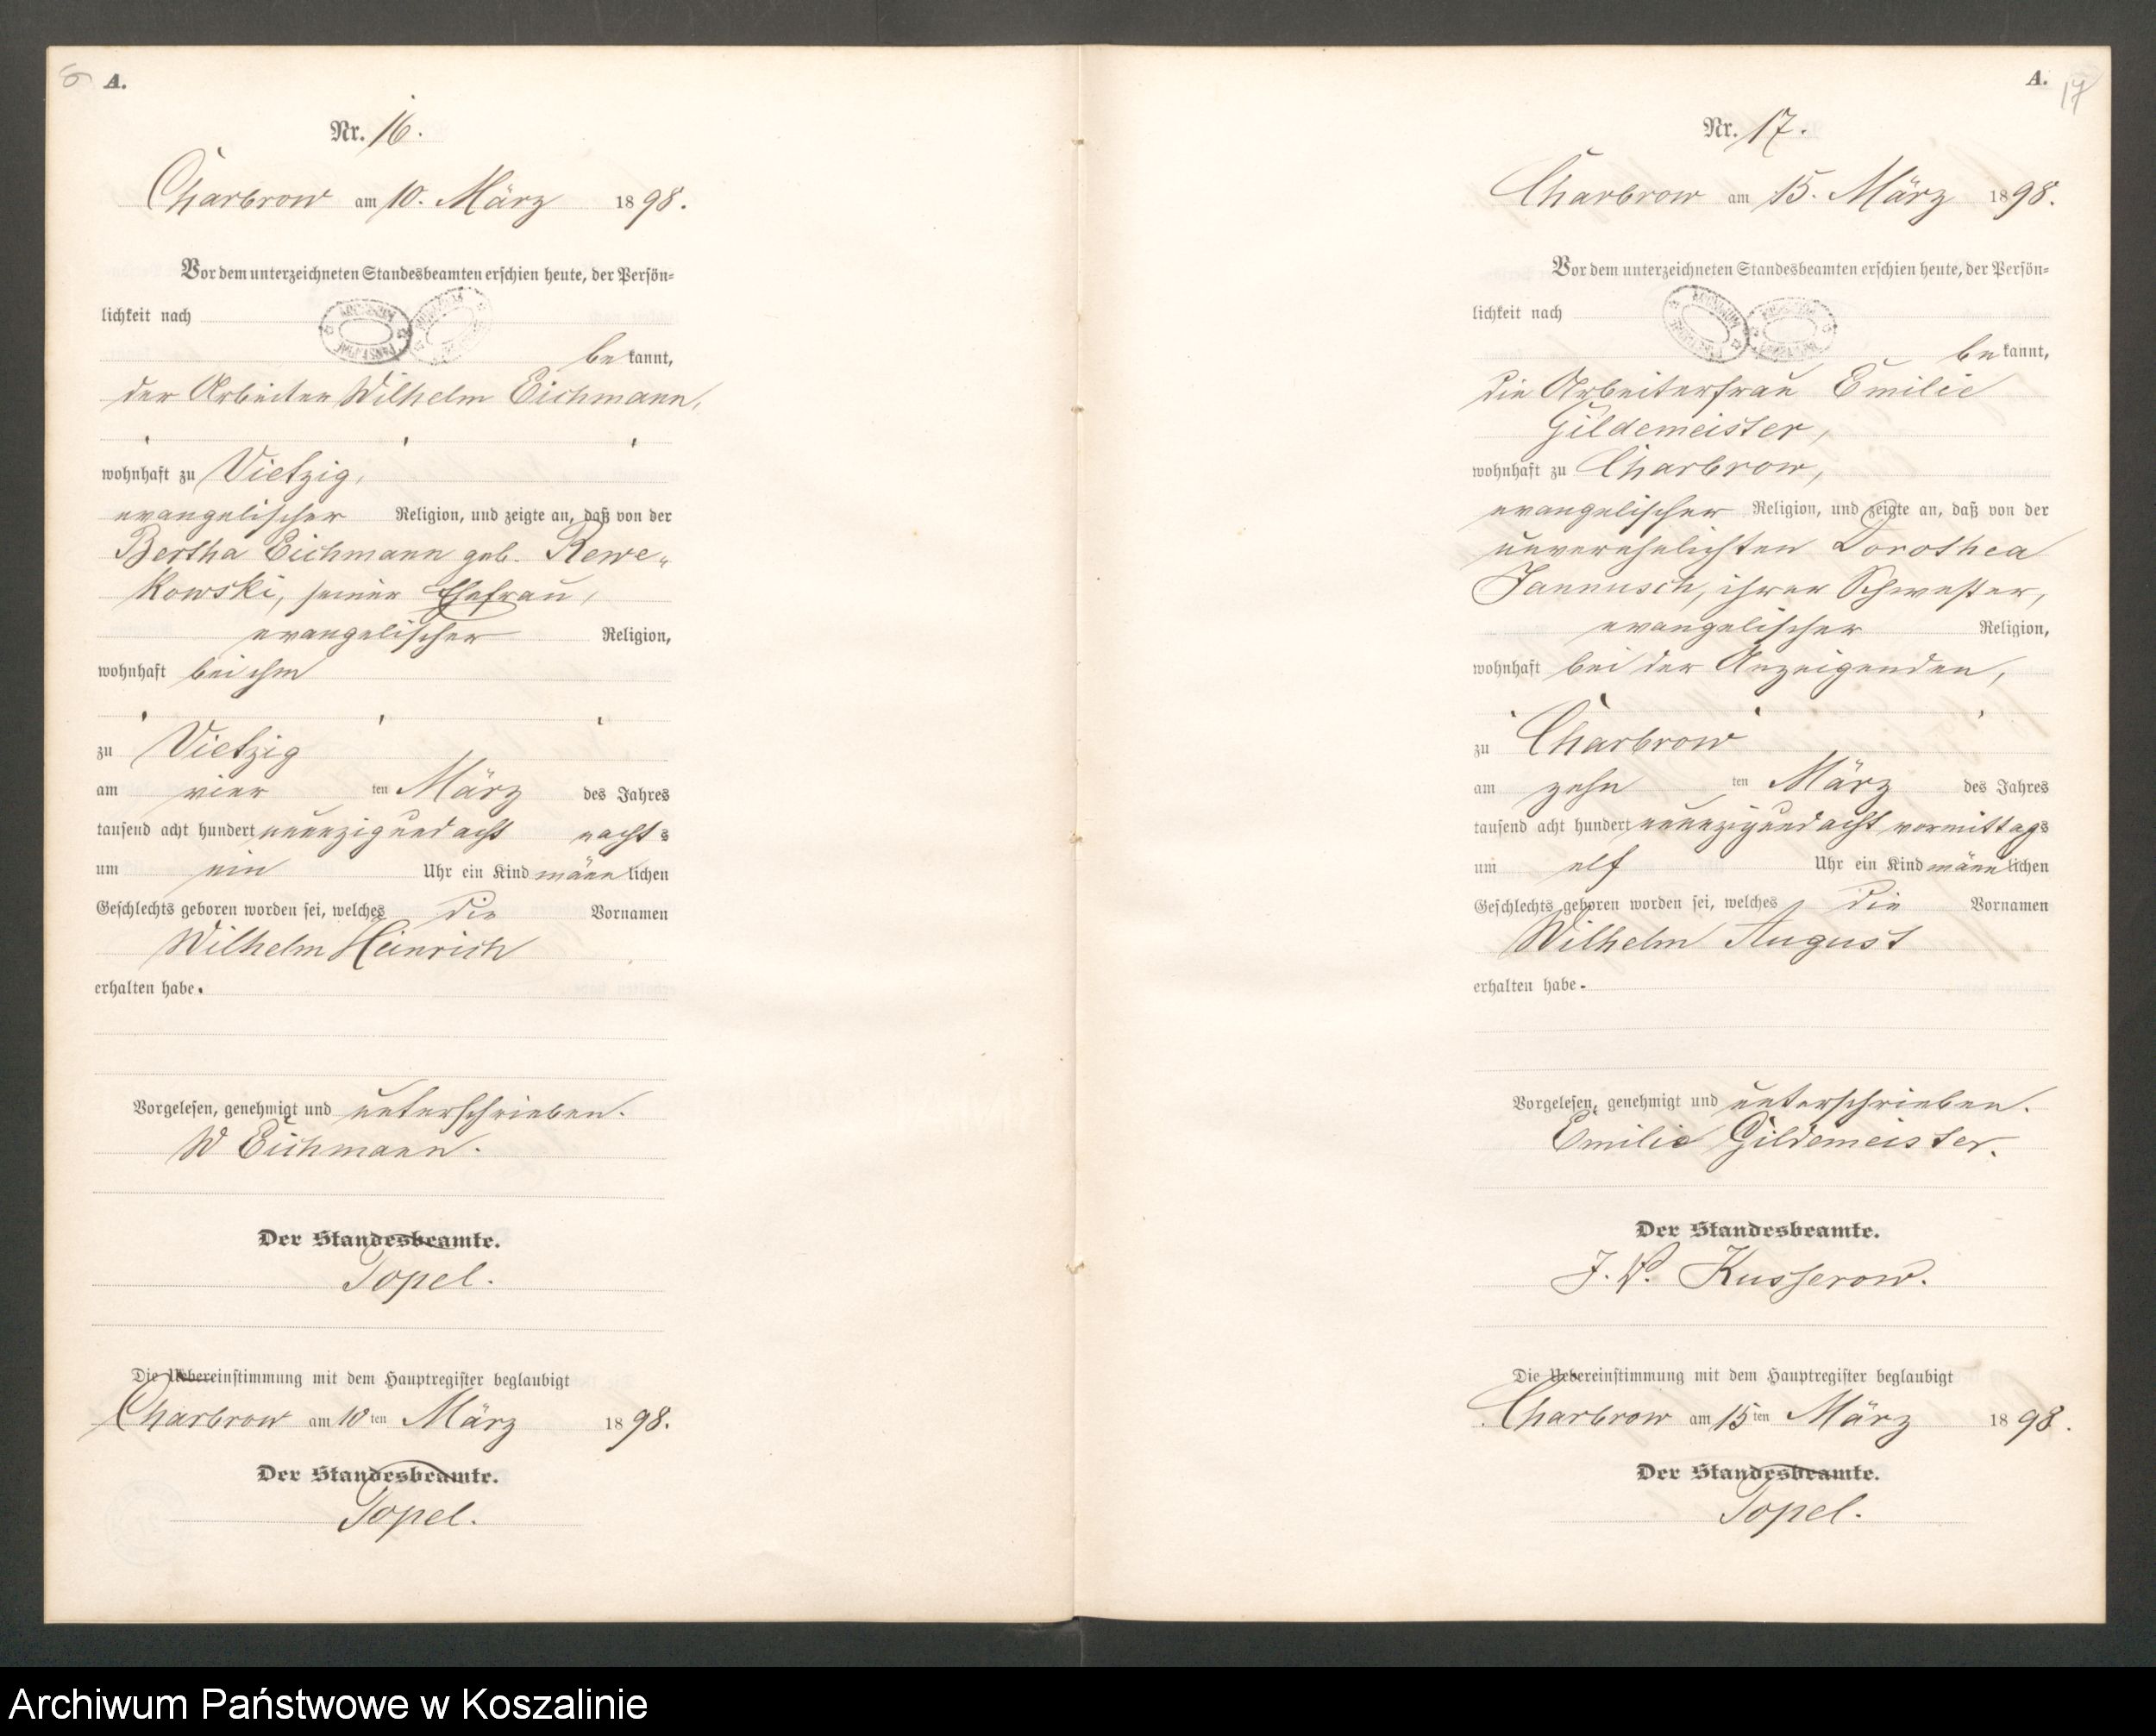 A.
Nr. 16.
Charbrow am 10. März 1898.
Vor dem unterzeichneten Standesbeamten erschien heute, der Persön-
lichkeit nach
bekannt,
der Arbeiter Wilhelm Eichmann,
wohnhaft zu Vietzig,
evangelischer Religion, und zeigte an, daß von der
Bertha Eichmann geb. Rewe-
kowski, seiner Ehefrau,
evangelischer Religion,
wohnhaft bei ihm
zu Vietzig
am vier ten März des Jahres
tausend acht hundert neunzig und acht nachts
um ein Uhr ein Kind männlichen
Geschlechts geboren worden sei, welches die Vornamen
Wilhelm Heinrich
erhalten habe.
Vorgelesen, genehmigt und unterschrieben.
W Eichmann.
Der Standesbeamte.
Topel.
Die Uebereinstimmung mit dem Hauptregister beglaubigt
Charbrow am 10ten März 1898.
Der Standesbeamte.
Topel.
A.
17
Nr. 17.
Charbrow am 15. März 1898.
Vor dem unterzeichneten Standesbeamten erschien heute, der Persön-
lichkeit nach
bekannt,
die Arbeiterfrau Emilie
Gildemeister,
wohnhaft zu Charbrow,
evangelischer Religion, und zeigte an, daß von der
unverehelichten Dorothea
Jannusch, ihrer Schwester,
evangelischer Religion,
wohnhaft bei der Anzeigenden,
zu Charbrow
am zehn ten März des Jahres
tausend acht hundert neunzig und acht vormittags
um elf Uhr ein Kind männlichen
Geschlechts geboren worden sei, welches die Vornamen
Wilhelm August
erhalten habe.
Vorgelesen, genehmigt und unterschrieben.
Emilie Gildemeister.
Der Standesbeamte.
J. V. Kusserow.
Die Uebereinstimmung mit dem Hauptregister beglaubigt
Charbrow am 15ten März 1898.
Der Standesbeamte.
Topel.
Archiwum Państwowe w Koszalinie